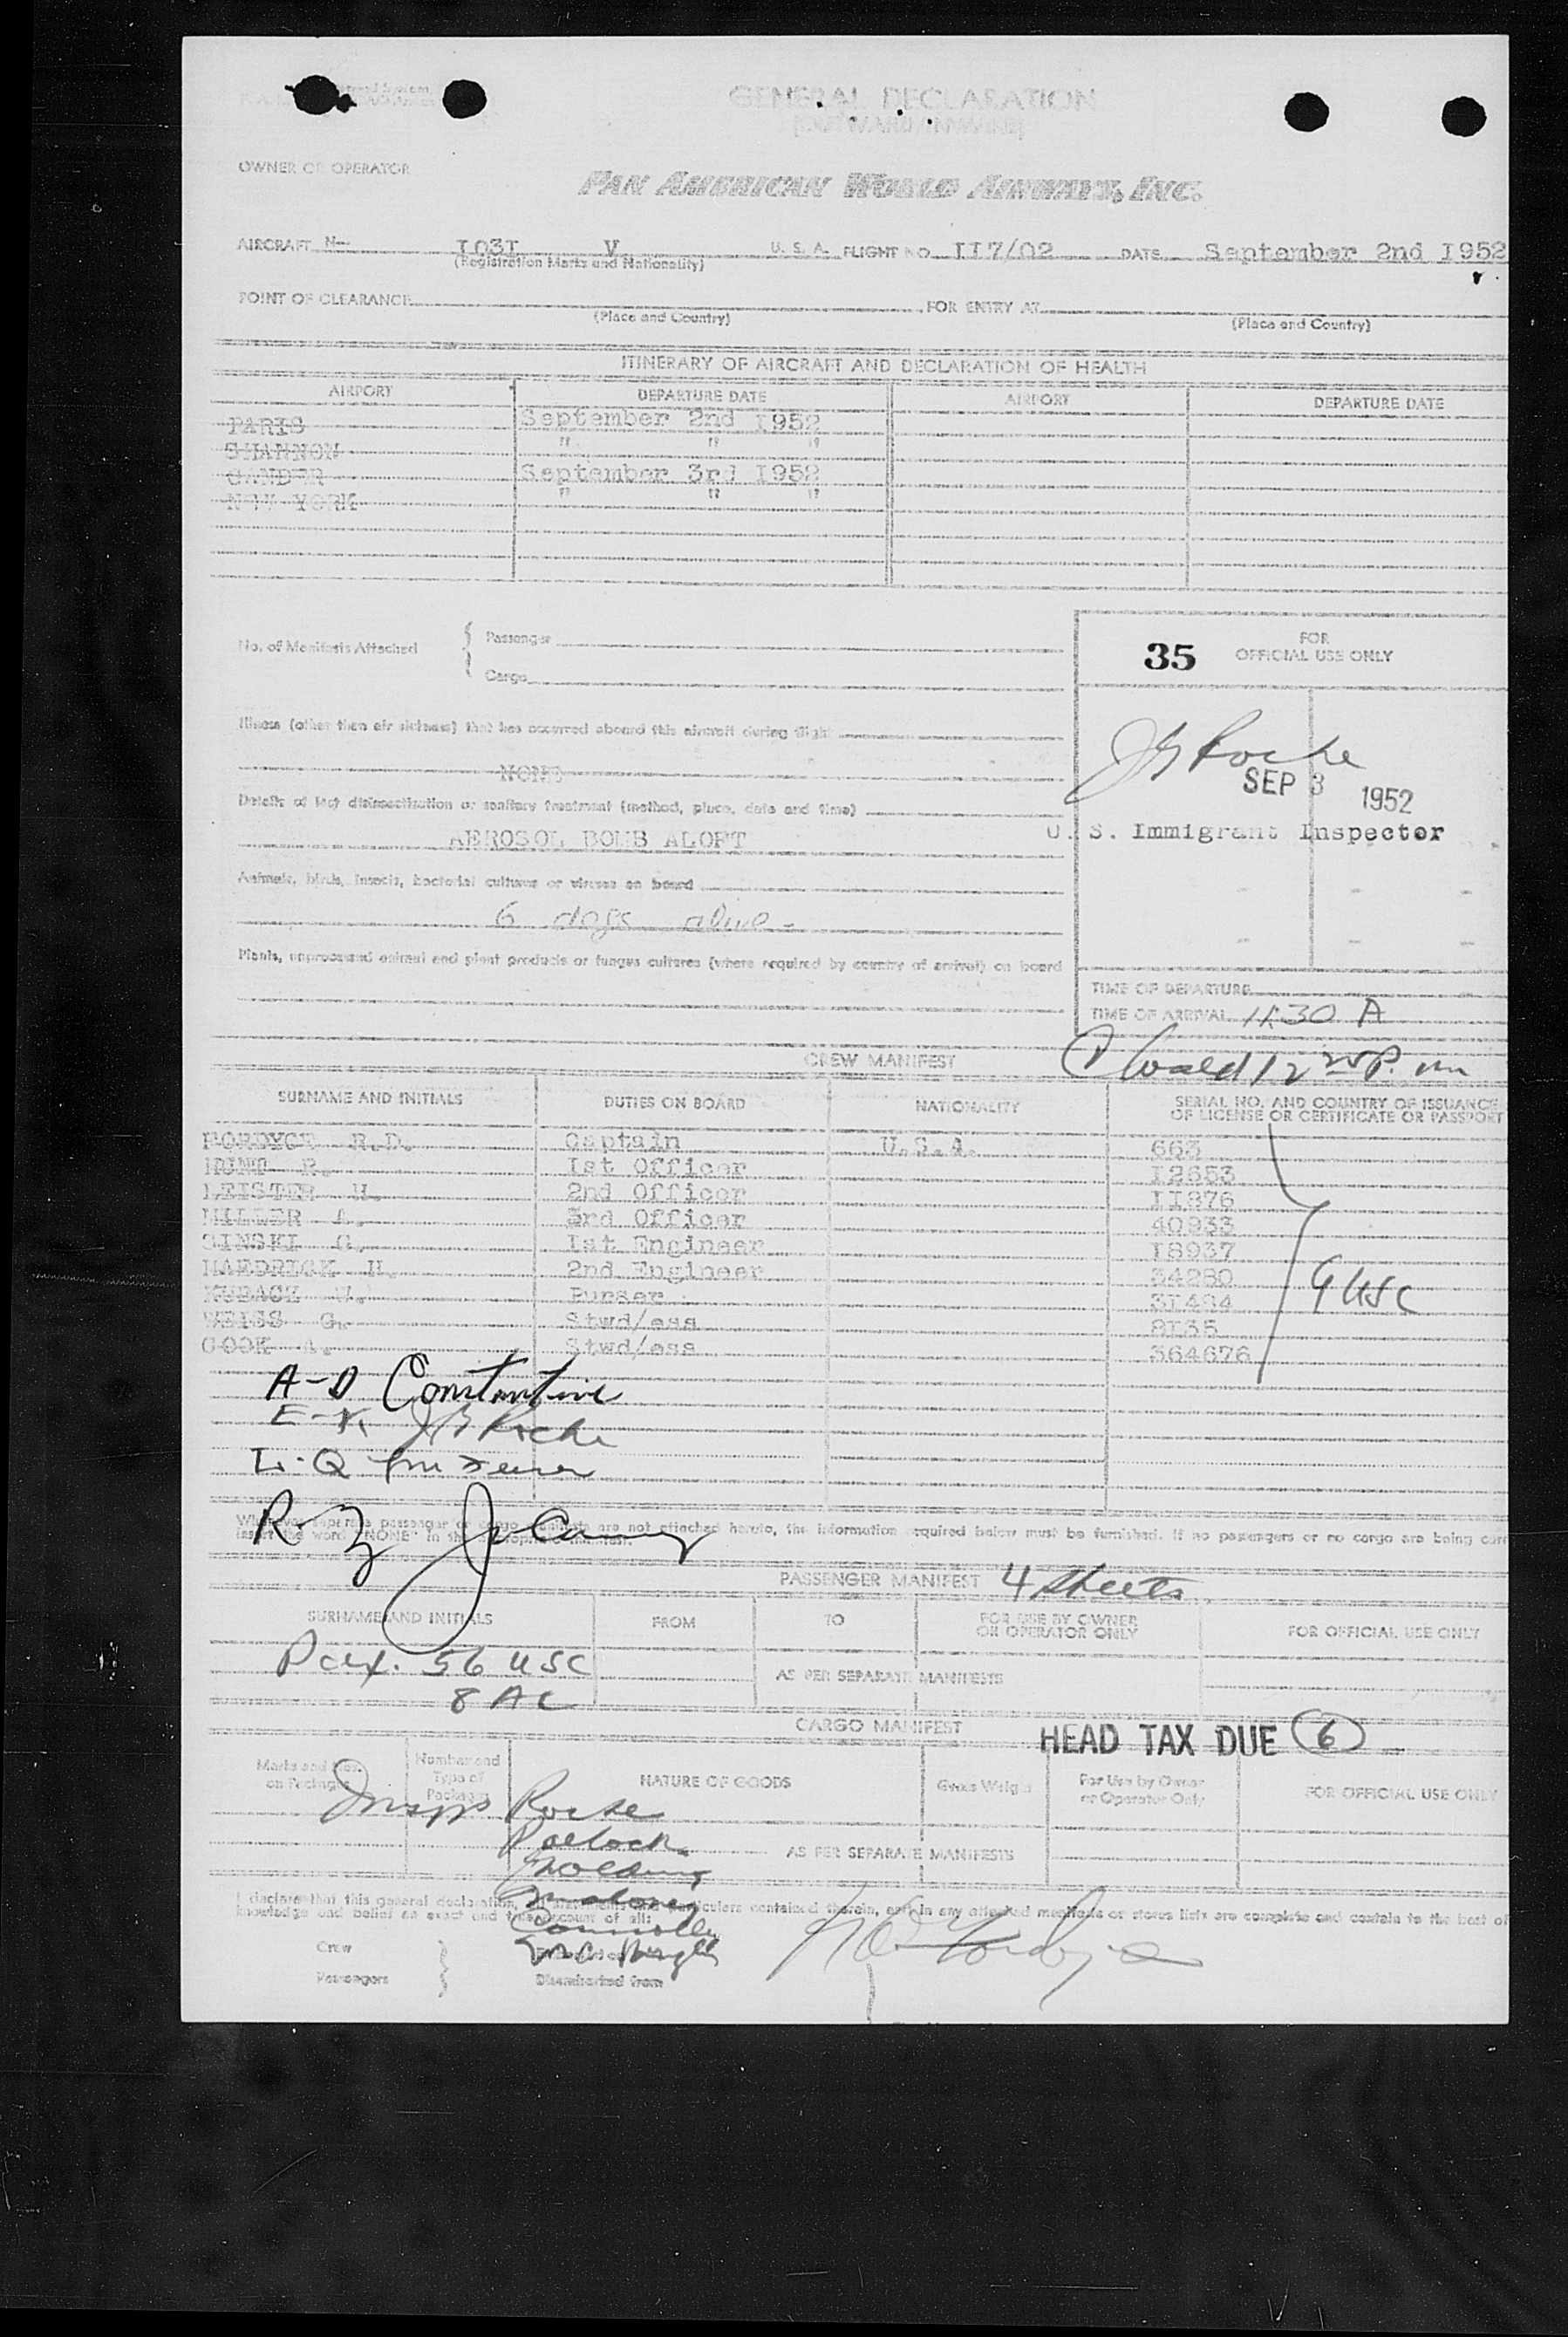 GENERAL DECLARATION
OWNER OR OPERATOR
PAN AMERICAN WORLD AIRWAYS, INC.
AIRCRAFT N- I03I V U. S. A. FLIGHT NO. II7/02 DATE September 2nd I952
(Registration Marks and Nationality)
POINT OF CLEARANCE FOR ENTRY AT
(Place and Country) (Place and Country)
ITINERARY OF AIRCRAFT AND DECLARATION OF HEALTH
AIRPORT DEPARTURE DATE AIRPORT DEPARTURE DATE
PARIS September 2nd I952
SHANNON " " "
GANDER September 3rd I952
NEW YORK " " "
No. of Manifests Attached { Passenger
Cargo
35 FOR OFFICIAL USE ONLY
Illness (other than air sickness) that has occurred aboard this aircraft during flight
NONE
J B Roche
SEP 3 1952
U. S. Immigrant Inspector
Details of last disinsectization or sanitary treatment (method, place, date and time)
AEROSOL BOMB ALOFT
Animals, birds, insects, bacterial cultures or viruses on board
6 dogs alive -
Plants, unprocessed animal and plant products or fungus cultures (where required by country of arrival) on board
TIME OF DEPARTURE
TIME OF ARRIVAL 11:30 A
CREW MANIFEST
SURNAME AND INITIALS DUTIES ON BOARD NATIONALITY SERIAL NO. AND COUNTRY OF ISSUANCE
OF LICENSE OR CERTIFICATE OR PASSPORT
FORDYCE R.D. Captain U.S.A. 663
Ist Officer I2653
LEISTER H. 2nd Officer II876
MILLER A. 3rd Officer 40933
Ist Engineer I8937
HAEDRICK H. 2nd Engineer 34280
Purser 3I484
WEISS G. Stwd/ess 8I35
COOK A. Stwd/ess 364676
9 USC
A-D Constantine
J B Roche
L-Q
R-Z
Whenever separate passenger or cargo manifests are not attached hereto, the information required below must be furnished. If no passengers or no cargo are being
insert the word "NONE" in the appropriate
PASSENGER MANIFEST 4 sheets
SURNAME AND INITIALS FROM TO FOR USE BY OWNER
OR OPERATOR ONLY FOR OFFICIAL USE ONLY
Pax. 56 USC
AS PER SEPARATE MANIFESTS
8 AL
CARGO MANIFEST
HEAD TAX DUE 6
Marks and Nos.
on Packages
Number and
Type of
Packages
NATURE OF GOODS Gross Weight For Use by Owner
or Operator Only FOR OFFICIAL USE ONLY
Insprs Roche
Pollock
AS PER SEPARATE MANIFESTS
Maloney
Connolly
I declare that this general declaration, particulars contained therein, and in any attached manifests or stores lists are complete and contain to the best of
knowledge and belief an exact and true account of all:
Crew
Passengers
Disembarked from